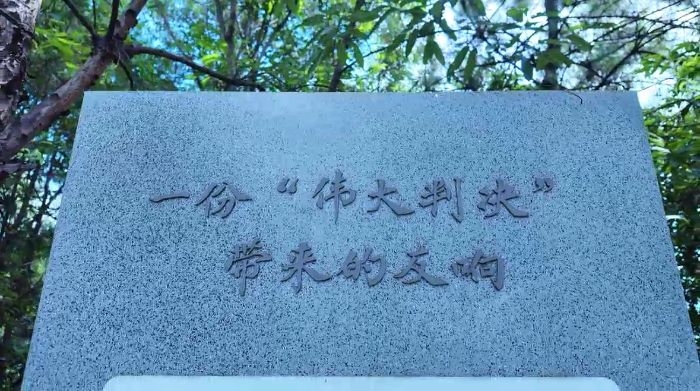 一份“伟大判决”
带来的反响